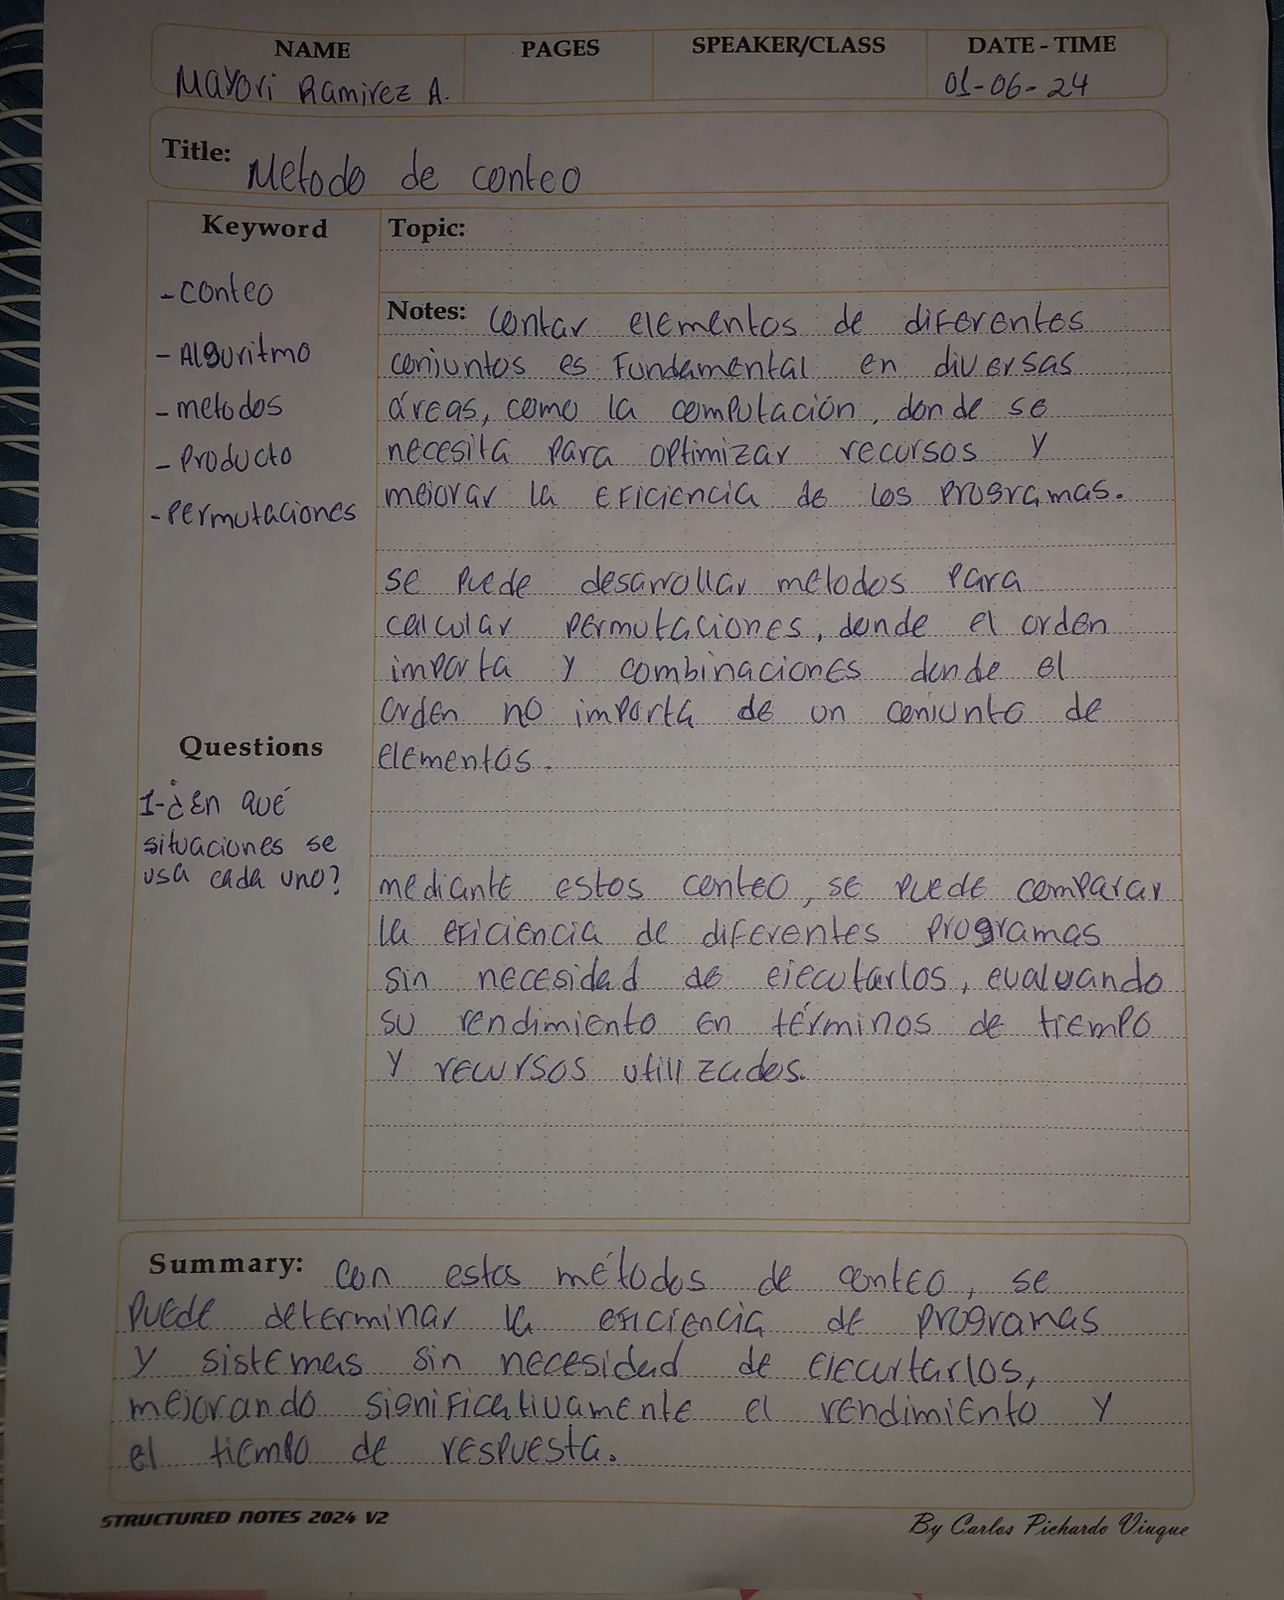 NAME PAGES SPEAKER/CLASS DATE - TIME
Mayori Ramirez A. 01-06-24
Title: Metodo de conteo
Keyword
- conteo
- Alguritmo
- metodos
- Producto
- Permutaciones
Questions
1-¿En qué
situaciones se
usa cada uno?
Topic:
Notes: Contar elementos de diferentes
conjuntos es Fundamental en diversas
áreas, como la computación, donde se
necesita para optimizar recursos y
mejorar la eficiencia de los programas.
se puede desarrollar metodos para
calcular permutaciones, donde el orden
importa y combinaciones donde el
orden no importa de un conjunto de
elementos.
mediante estos conteo, se puede comparar
la eficiencia de diferentes programas
sin necesidad de ejecutarlos, evaluando
su rendimiento en términos de tiempo
y recursos utilizados.
Summary: con estos métodos de conteo, se
puede determinar la eficiencia de programas
y sistemas sin necesidad de ejecurtarlos,
mejorando significativamente el rendimiento y
el tiempo de respuesta.
STRUCTURED NOTES 2024 V2 By Carlos Pichardo Viuque